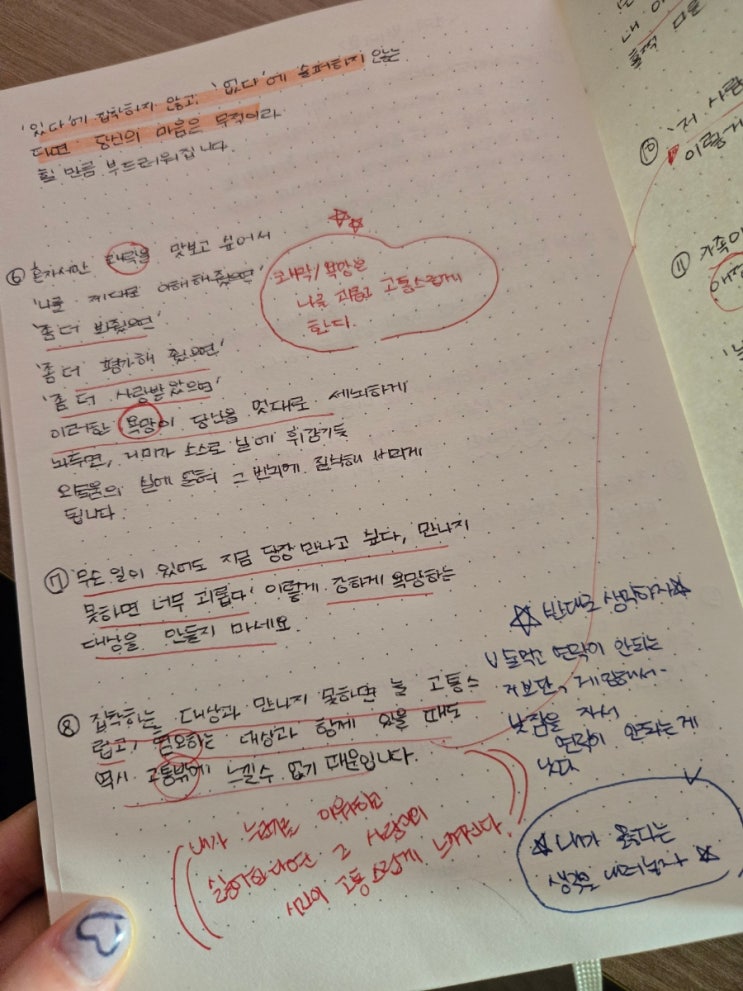 '있다'에 집착하지 않고, '없다'에 슬퍼하지 않는
다면 당신의 마음은 무적이라
할 만큼 부드러워집니다.
⑥ 혼자서만 쾌락을 맛보고 싶어서
'나를 제대로 이해해 줬으면'
'좀 더 봐줬으면'
'좀 더 평가해 줬으면'
'좀 더 사랑받았으면'
이러한 욕망이 당신을 멋대로 세뇌하게
놔두면, 거미가 스스로 실에 휘감기듯
의 실에 그 번뇌에 집착해 버리게
됩니다.
쾌락/욕망은
나를 고통스럽게
한다.
⑦ 무슨 일이 있어도 지금 당장 만나고 싶다, 만나지
못하면 너무 괴롭다' 이렇게 강하게 욕망하는
대상을 만들지 마세요.
⑧ 집착하는 대상과 만나지 못하면 늘 고통스
럽고, 혐오하는 대상과 함께 있을 때도
역시 고통밖에 느낄 수 없기 때문입니다.
내가 누군가를 미워하고
싫어한다면 그 사람과의
시간이 고통스럽게 느껴진다.
☆ 반대로 생각하자 ☆
연락이 안되는
거보단,
낮잠을 자서
연락이 안되는게
낫다
☆ 내가 옳다는
생각을 내려놓자 ☆
내
⑩ '저 사람
이렇게
⑪ 가족이